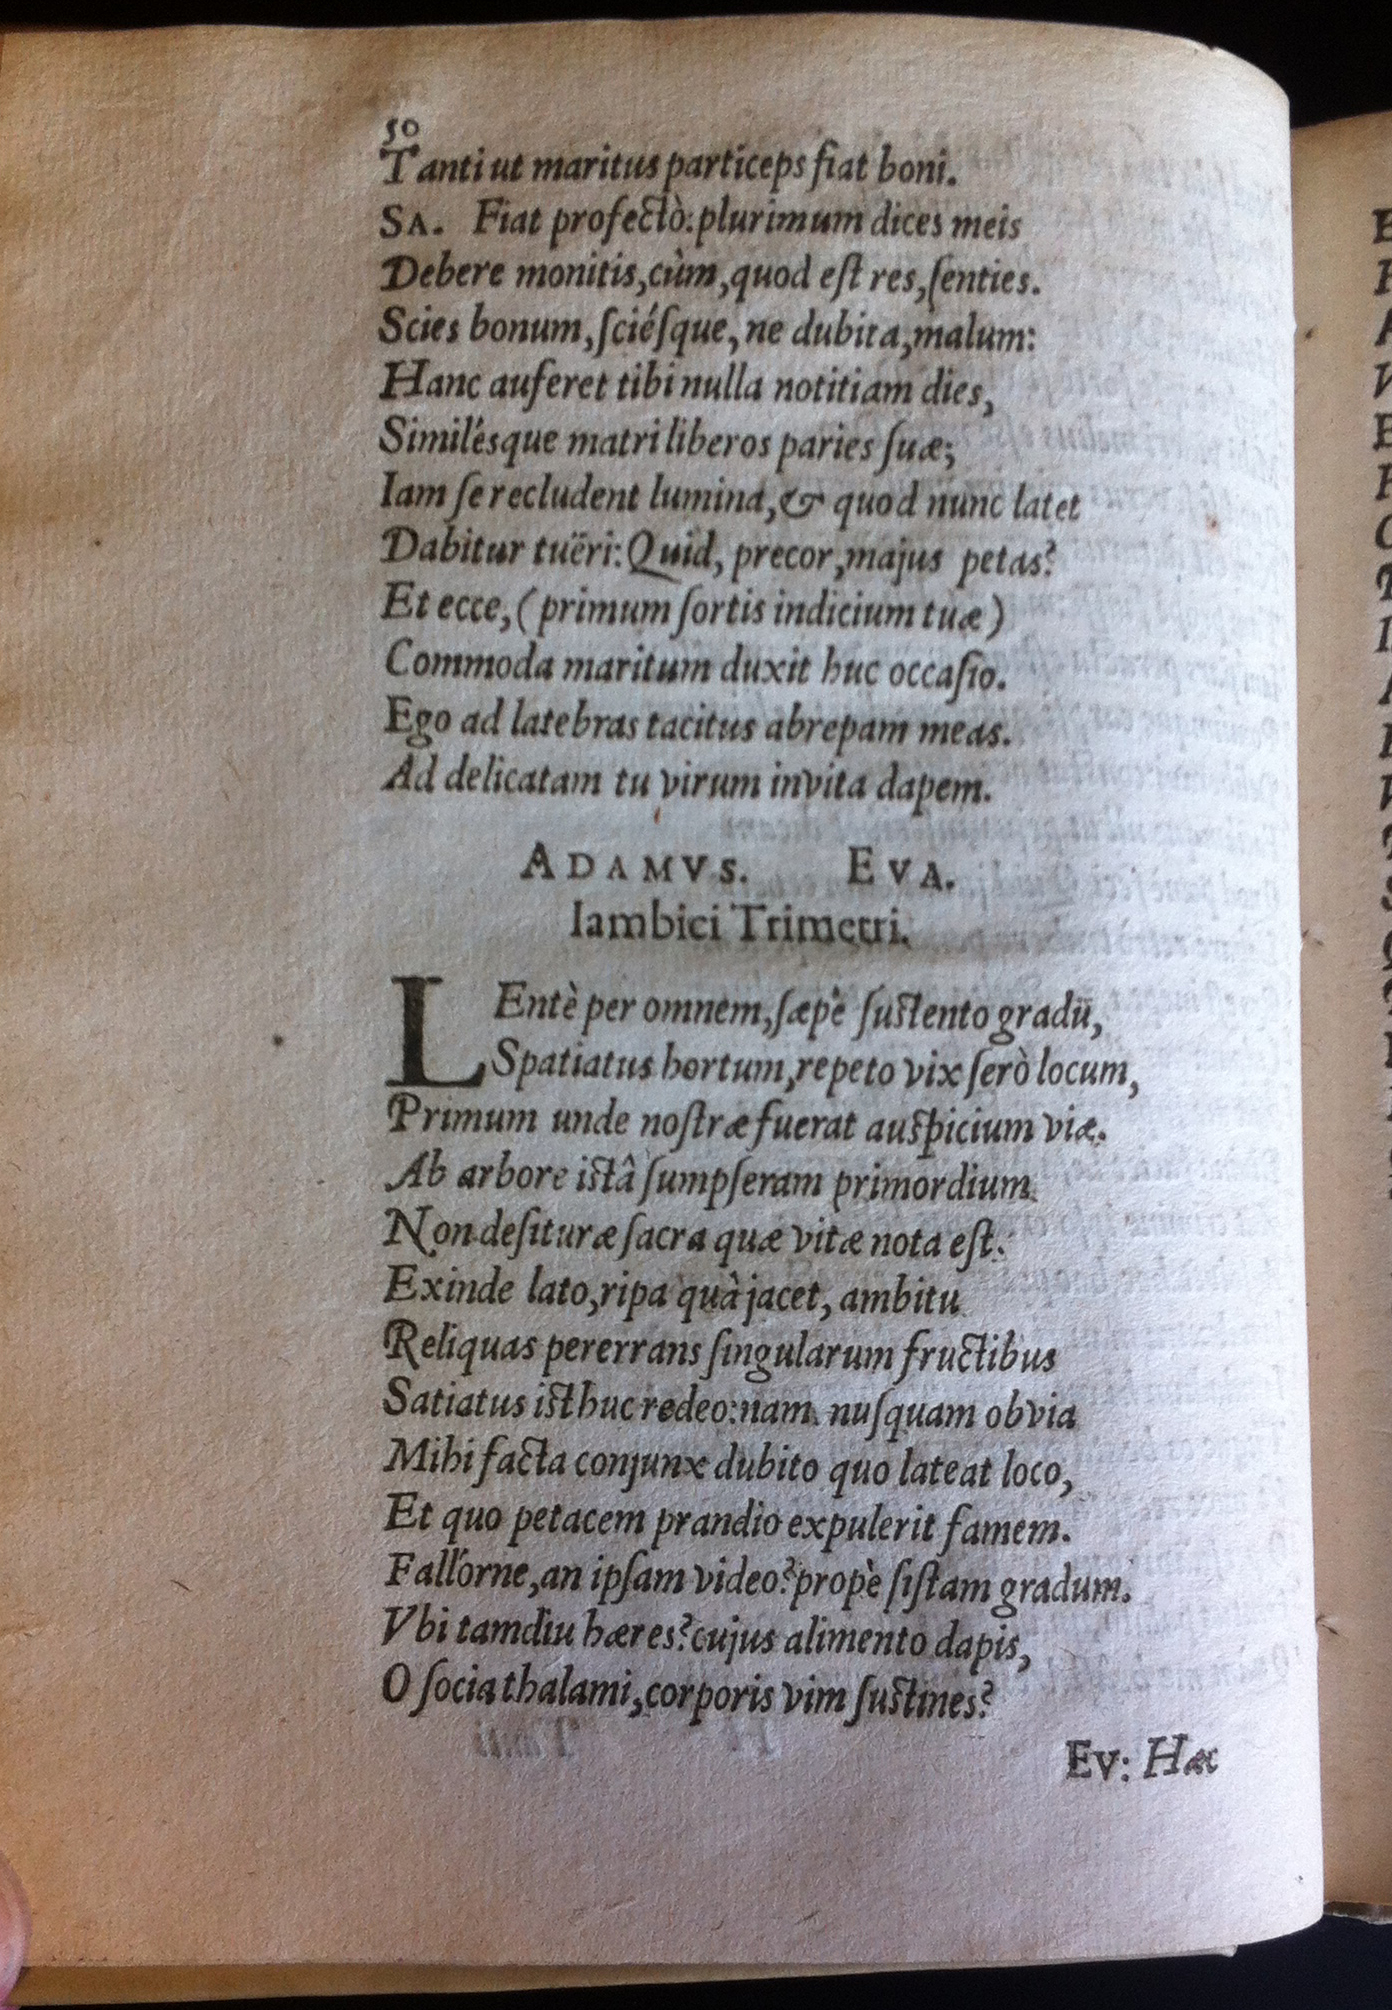 50
Tanti ut maritus particeps fiat boni.
SA. Fiat profectò: plurimum dices meis
Debere monitis, cùm, quod eſt res, ſenties.
Scies bonum, ſciéſque, ne dubita, malum:
Hanc auferet tibi nulla notitiam dies,
Similésque matri liberos paries ſuæ;
Iam ſe recludent lumina, & quod nunc latet
Dabitur tuëri: Quid, precor, majus petas?
Et ecce, (primum ſortis indicium tuæ)
Commoda maritum duxit huc occaſio.
Ego ad latebras tacitus abrepam meas.
Ad delicatam tu virum invita dapem.
ADAMVS. EVA.
Iambici Trimetri.
LEntè per omnem, ſæpè ſuſtento gradū,
Spatiatus hortum, repeto vix ſerò locum,
Primum unde noſtræ fuerat auſpicium viæ.
Ab arbore iſtâ ſumpſeram primordium
Non deſituræ ſacra quæ vitæ nota eſt.
Exinde lato, ripa quà jacet, ambitu
Reliquas pererrans ſingularum fructibus
Satiatus iſthuc redeo: nam nuſquam obvia
Mihi facta conjunx dubito quo lateat loco,
Et quo petacem prandio expulerit famem.
Fallorne, an ipſam video? propè ſiſtam gradum.
Vbi tamdiu hæres? cujus alimento dapis,
O ſocia thalami, corporis vim ſuſtines?
EV: Hæc